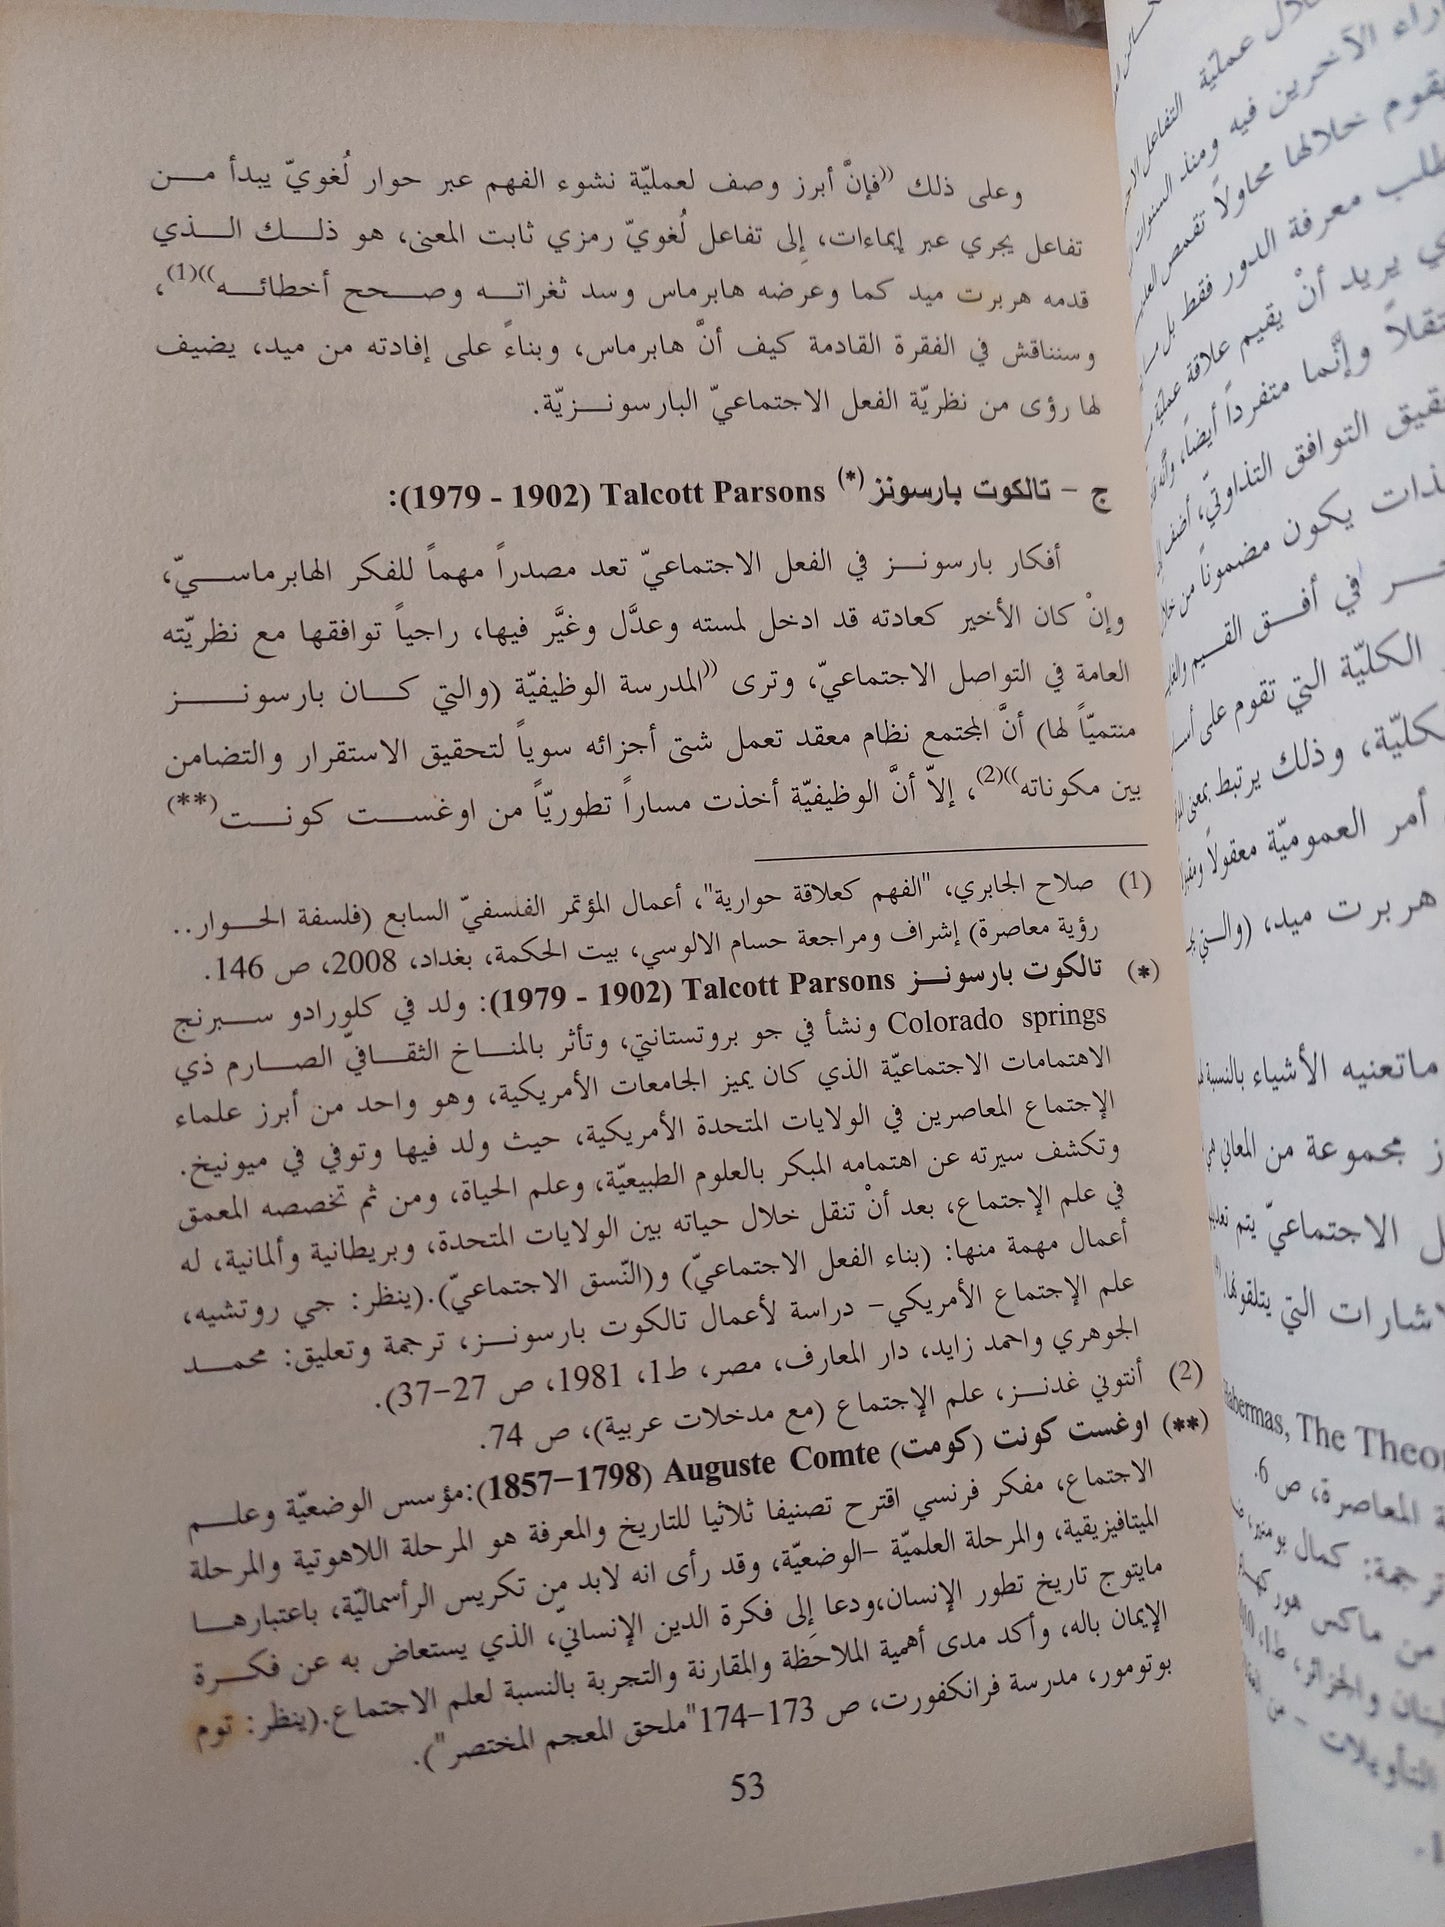 وعلى ذلك ((فإنَّ أبرز وصف لعمليّة نشوء الفهم عبر حوار لُغويّ يبدأ من
تفاعل يجري عبر إيماءات، إلى تفاعل لُغويّ رمزي ثابت المعنى، هو ذلك الذي
قدمه هربرت ميد كما وعرضه هابرماس وسد ثغراته وصحح أخطائه))(1)،
وسنناقش في الفقرة القادمة كيف أنَّ هابرماس، وبناءً على إفادته من ميد، يضيف
لها رؤى من نظريّة الفعل الاجتماعيّ البارسونزيّة.
ج – تالكوت بارسونز(*) Talcott Parsons (1902 - 1979):
أفكار بارسونز في الفعل الاجتماعيّ تعد مصدراً مهماً للفكر الهابرماسيّ،
وإنْ كان الأخير كعادته قد ادخل لمسته وعدَّل وغيَّر فيها، راجياً توافقها مع نظريّته
العامة في التواصل الاجتماعيّ، وترى ((المدرسة الوظيفيّة (والتي كان بارسونز
منتميّاً لها) أنَّ المجتمع نظام معقد تعمل شتى أجزائه سوياً لتحقيق الاستقرار والتضامن
بين مكوناته))(2)، إلاّ أنَّ الوظيفيّة أخذت مساراً تطوريّاً من اوغست كونت(**)
(1) صلاح الجابري، "الفهم كعلاقة حوارية"، أعمال المؤتمر الفلسفيّ السابع (فلسفة الحوار..
رؤية معاصرة) إشراف ومراجعة حسام الالوسي، بيت الحكمة، بغداد، 2008، ص 146.
(*) تالكوت بارسونز Talcott Parsons (1902 - 1979): ولد في كلورادو سبرنج
Colorado springs ونشأ في جو بروتستانتي، وتأثر بالمناخ الثقافيّ الصارم ذي
الاهتمامات الاجتماعيّة الذي كان يميز الجامعات الأمريكية، وهو واحد من أبرز علماء
الإجتماع المعاصرين في الولايات المتحدة الأمريكية، حيث ولد فيها وتوفي في ميونيخ.
وتكشف سيرته عن اهتمامه المبكر بالعلوم الطبيعيّة، وعلم الحياة، ومن ثم تخصصه المعمق
في علم الإجتماع، بعد أنْ تنقل خلال حياته بين الولايات المتحدة، وبريطانية وألمانية، له
أعمال مهمة منها: (بناء الفعل الاجتماعيّ) و(النّسق الاجتماعيّ).(ينظر: جي روتشيه،
علم الإجتماع الأمريكي– دراسة لأعمال تالكوت بارسونز، ترجمة وتعليق: محمد
الجوهري واحمد زايد، دار المعارف، مصر، ط1، 1981، ص 27–37).
(2) أنتوني غدنز، علم الإجتماع (مع مدخلات عربية)، ص 74.
(**) اوغست كونت (كومت) Auguste Comte (1798–1857):مؤسس الوضعيّة وعلم
الاجتماع، مفكر فرنسي اقترح تصنيفا ثلاثيا للتاريخ والمعرفة هو المرحلة اللاهوتية والمرحلة
الميتافيزيقية، والمرحلة العلميّة –الوضعيّة، وقد رأى انه لابد من تكريس الرأسماليّة، باعتبارها
مايتوج تاريخ تطور الإنسان،ودعا إلى فكرة الدين الإنسانيّ، الذي يستعاض به عن فكرة
الإيمان باله، وأكد مدى أهمية الملاحظة والمقارنة والتجربة بالنسبة لعلم الاجتماع.(ينظر: توم
بوتومور، مدرسة فرانكفورت، ص 173–174"ملحق المعجم المختصر").
53
عملية التفاعل
آراء الآخرين فيه ومنذ السنوات
يقوم خلالها محاولاً تقمص
طلب معرفة الدور فقط بل
يريد أنْ يقيم علاقة عمليّة
وإنَّما متفرداً أيضاً، وأنَّه
التوافق التذاوتيّ، أضف
يكون مضموناً من خلال
في أفق القيم
الكليّة التي تقوم على
وذلك يرتبط بمعنى
أمر العموميّة معقولاً
هربرت ميد، (والتي
ماتعنيه الأشياء بالنسبة
مجموعة من المعاني هي
الاجتماعيّ يتم
الاشارات التي يتلقونها.
Habermas, The Theor
المعاصرة، ص 6.
ترجمة: كمال بومنير،
من ماكس هوركهايمر
لبنان والجزائر، ط1،
التأويلات – من